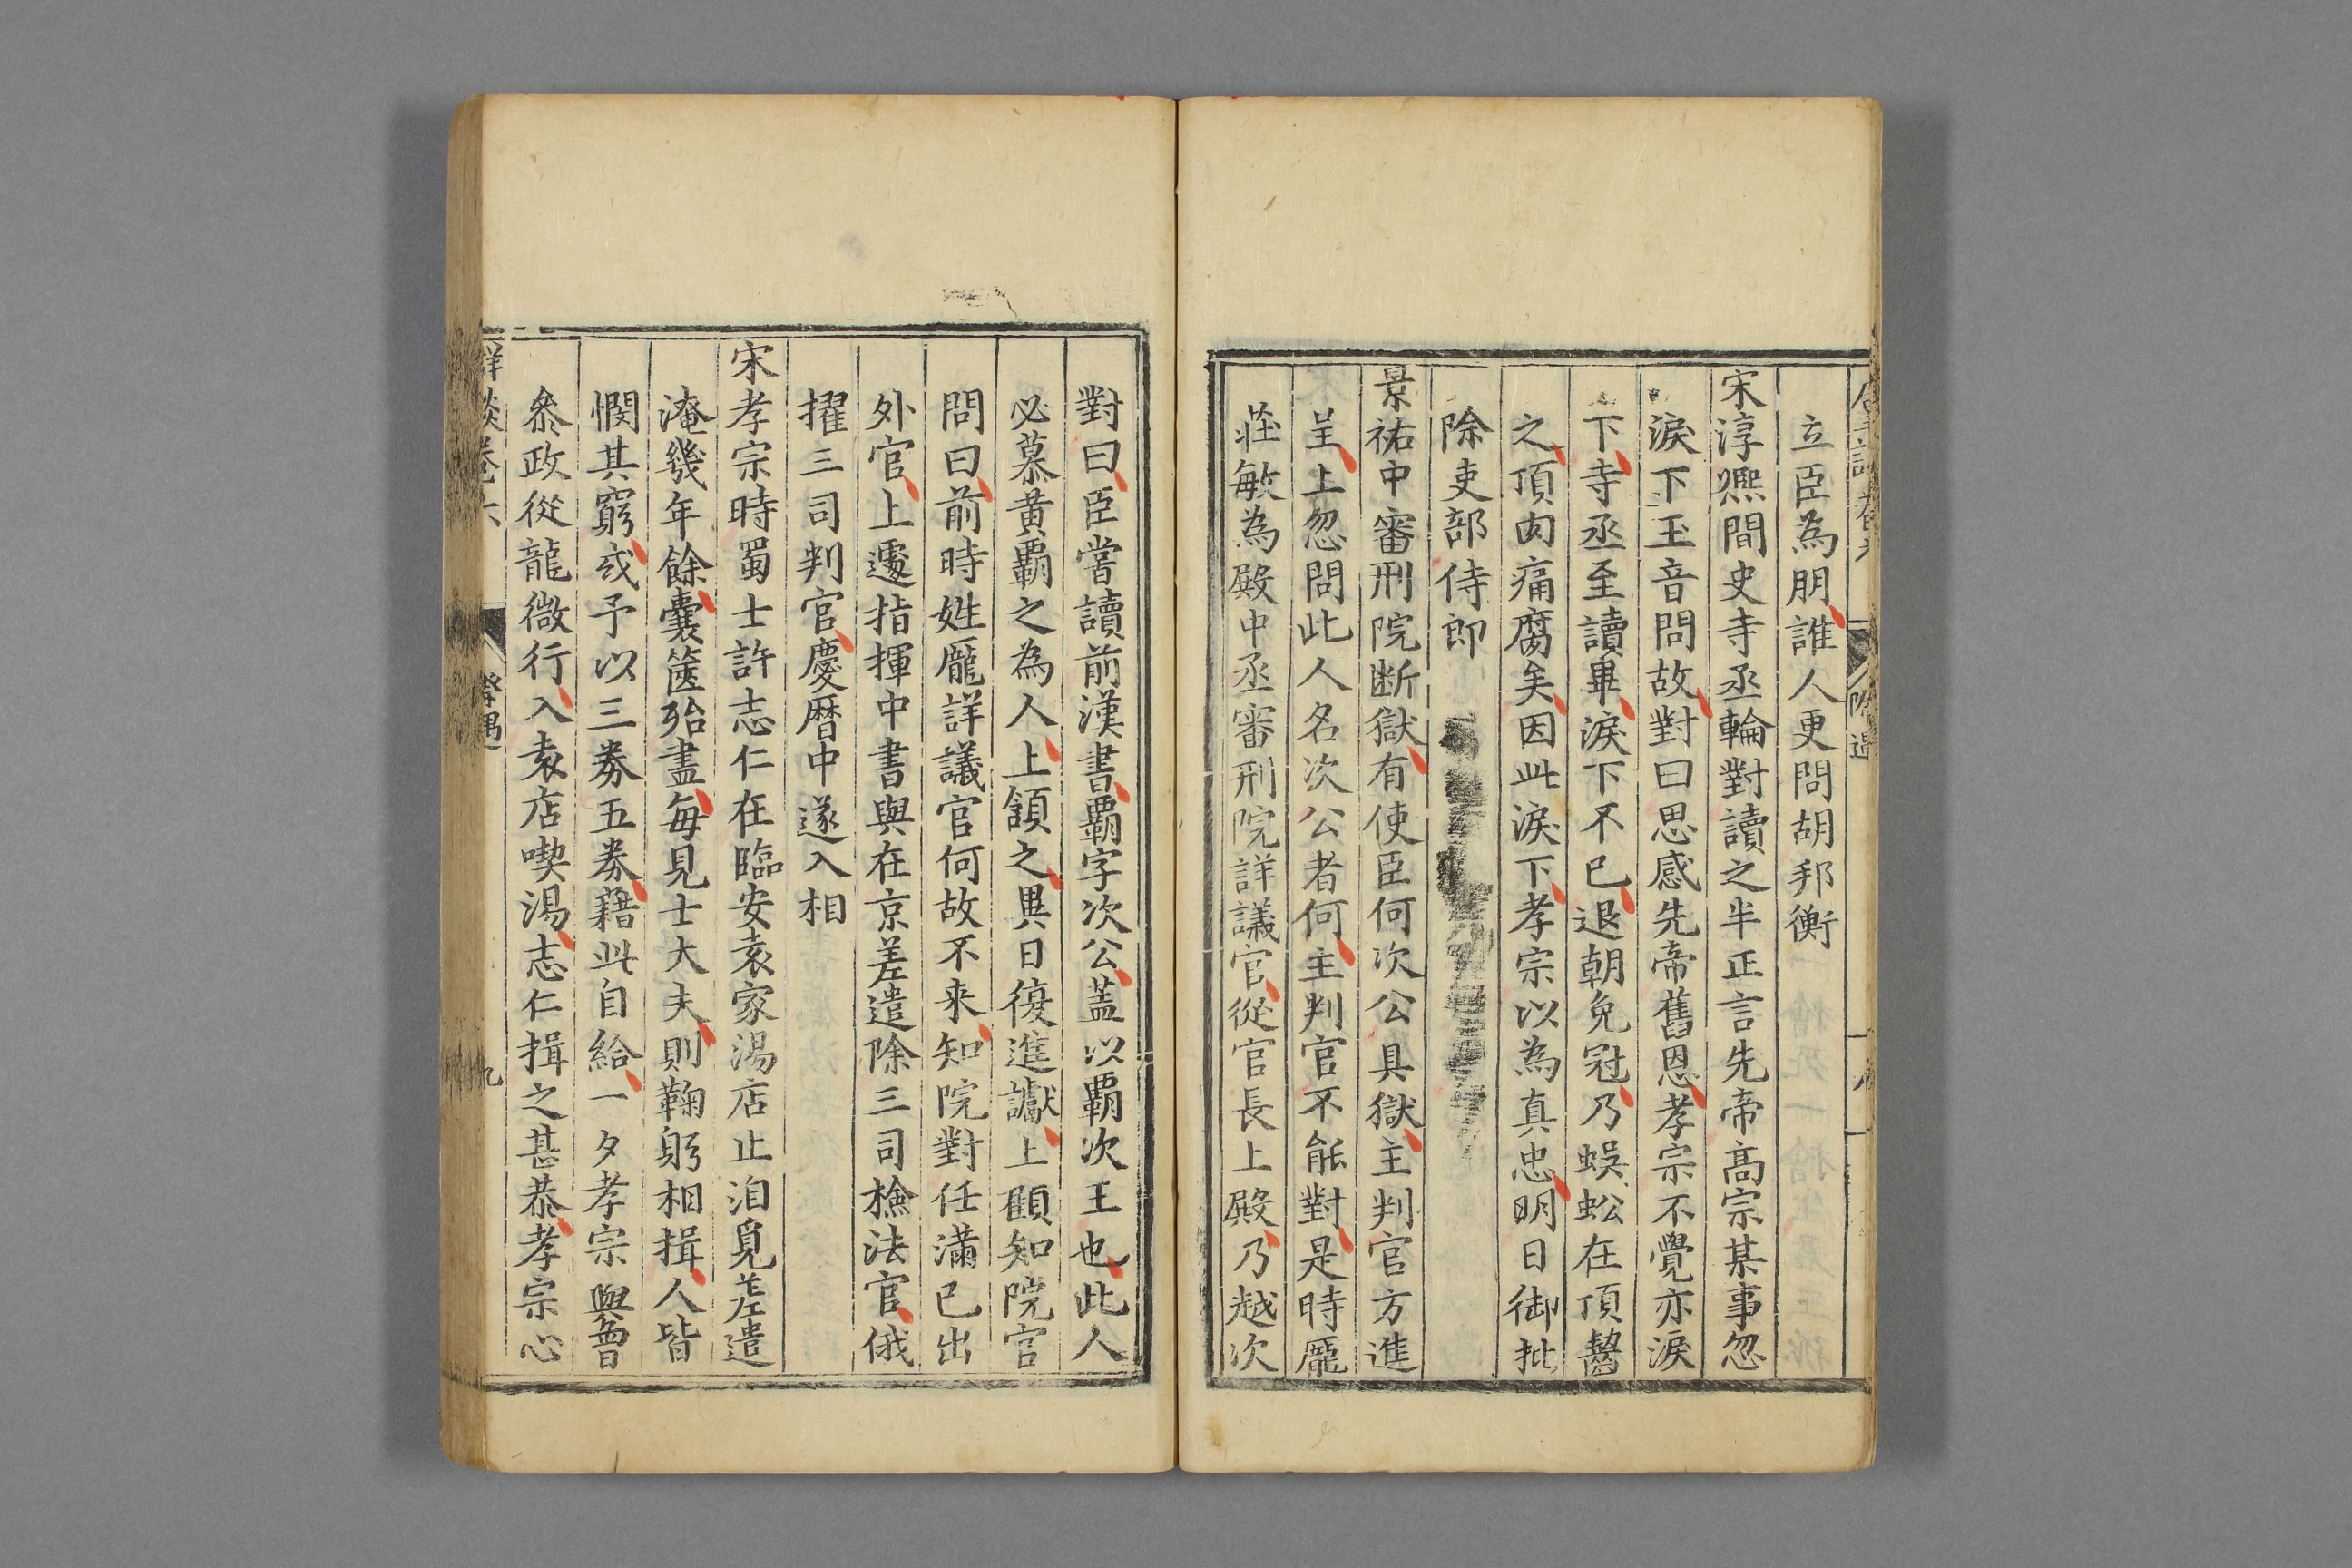 立臣為朋誰人更問胡邦衡
宋淳熈間史寺丞輪對讀之半正言先帝高宗某事忽
淚下玉音問故對曰思感先帝舊恩孝宗不覺亦淚
下寺丞至讀畢淚下不已退朝免冠乃蜈蚣在頂齧
之頂肉痛腐矣因此淚下孝宗以為真忠明日御批
除吏部侍郎
景祐中審刑院断獄有使臣何次公具獄主判官方進
呈上忽問此人名次公者何主判官不能對是時龐
莊敏為殿中丞審刑院詳議官從官長上殿乃越次
對曰臣嘗讀前漢書覇字次公蓋以覇次王也此人
必慕黄覇之為人上頷之異日復進讞上顧知院官
問曰前時姓龐詳議官何故不来知院對任滿已出
外官上遽指揮中書與在京差遣除三司檢法官俄
擢三司判官慶曆中遂入相
宋孝宗時蜀士許志仁在臨安袁家湯店止洎覓差遣
淹幾年餘囊篋殆盡每見士大夫則鞠躬相揖人皆
憫其窮或予以三劵五劵藉此自給一夕孝宗與魯
叅政從龍微行入袁店喫湯志仁揖之甚恭孝宗心
群談卷六 際遇 九